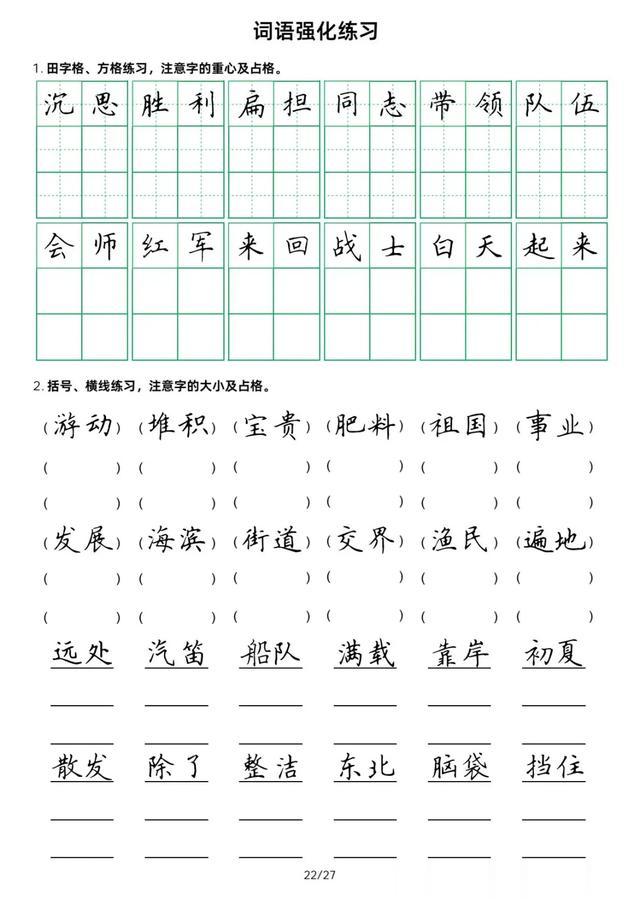 词语强化练习
1. 田字格、方格练习，注意字的重心及占格。
沉思 胜利 扁担 同志 带领 队伍
会师 红军 来回 战士 白天 起来
2. 括号、横线练习，注意字的大小及占格。
(游动) (堆积) (宝贵) (肥料) (祖国) (事业)
( ) ( ) ( ) ( ) ( ) ( )
( ) ( ) ( ) ( ) ( ) ( )
(发展) (海滨) (街道) (交界) (渔民) (遍地)
( ) ( ) ( ) ( ) ( ) ( )
( ) ( ) ( ) ( ) ( ) ( )
远处 汽笛 船队 满载 靠岸 初夏
散发 除了 整洁 东北 脑袋 挡住
22/27